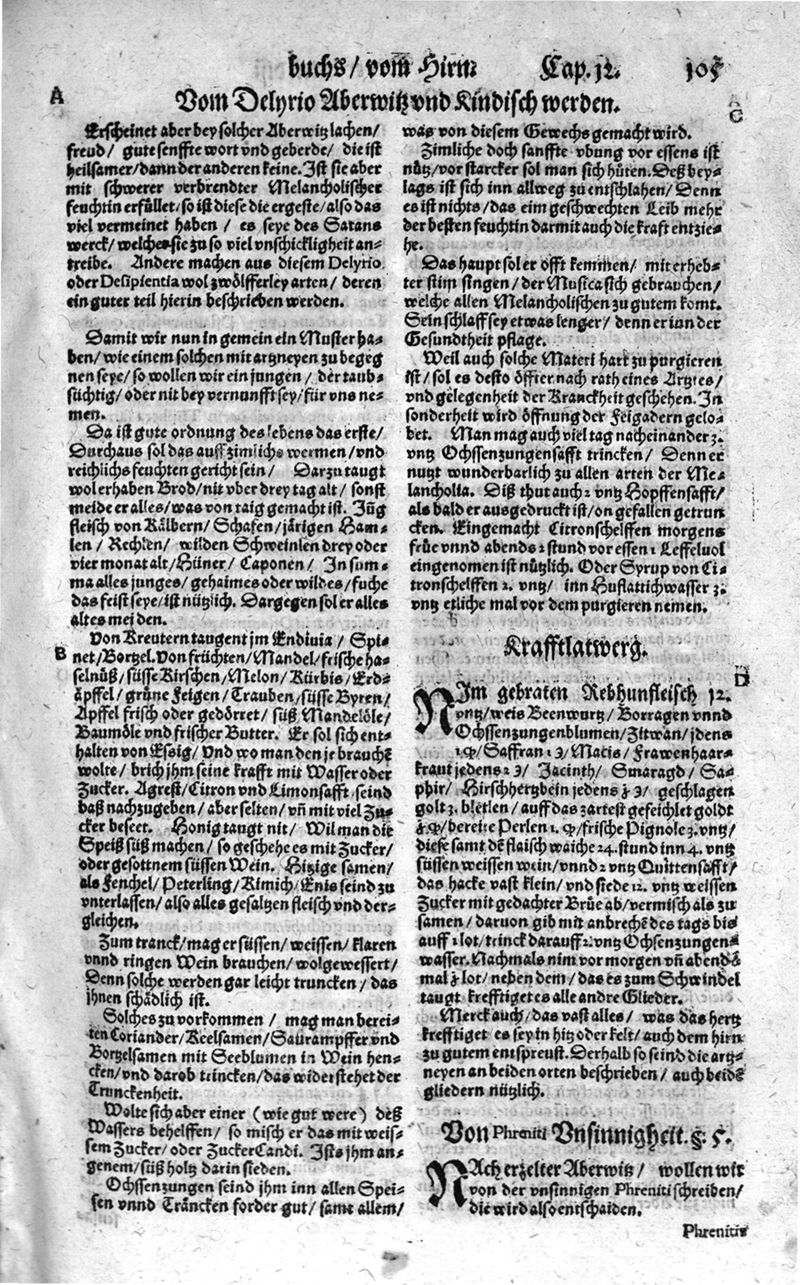 buchs / vom Hirn Cap. 12. 105
A
Vom Delyrio Aberwitz vnd Kindisch werden.
C
Erscheinet aber bey solcher Aberwitz lachen /
freud / gute senffte wort vnd geberde / die ist
heilsamer / dann der anderen keine. Ist sie aber
mit schwerer verbrendter Melancholischer
feuchtin erfüllet / so ist diese die ergeste / also das
viel vermeinet haben / es seye des Satans
werck / welches sie zu so viel vnschickligheit an-
treibe. Andere machen aus diesem Delyrio
oder Desipientia wol zwölfferley arten / deren
ein guter teil hierin beschrieben werden.
Damit wir nun in gemein ein Muster ha-
ben / wie einem solchen mit artzneyen zu begeg
nen seye / so wollen wir ein jungen / der taub-
süchtig / oder nit bey vernunfft sey / für vns ne-
men.
Da ist gute ordnung des lebens das erste /
Durchaus sol das auff zimlichs wermen / vnd
reichlichs feuchten gericht sein / Darzu taugt
wol erhaben Brod / nit vber drey tag alt / sonst
meide er alles / was von taig gemacht ist. Jung
fleisch von Kälbern / Schafen / järigen Ham-
len / Rechlen / wilden Schweinlen drey oder
vier monat alt / Hüner / Caponen / In sum-
ma alles junges / geheimes oder wildes / fuche
das feist seye / ist nützlich. Dargegen sol er alles
altes meiden.
B
Von Kreutern taugent jm Endiuia / Spi-
net / Bortzel. Von früchten / Mandel / frische ha-
selnüß / süsse Kirschen / Melon / Kürbis / Erd-
äpffel / grüne Feigen / Trauben / süsse Byren /
Apffel frisch oder gedörret / süß Mandelöle /
Baumöle vnd frischer Butter. Er sol sich ent-
halten von Essig / Vnd wo man den je brauchē
wolte / brich jhm seine krafft mit Wasser oder
Zucker. Agrest / Citron vnd Limonsafft seind
daß nachzugeben / aber selten / vñ mit viel Zu-
cker beseet. Honig taugt nit / Wil man die
Speiß süß machen / so geschehe es mit Zucker /
oder gesottnem süssen Wein. Hitzige samen /
als Fenchel / Peterling / Kimich / Enis seind zu
vnterlassen / also alles gesaltzen fleisch vnd der-
gleichen.
Zum tranck / mag er süssen / weissen / klaren
vnnd ringen Wein brauchen / wolgewessert /
Denn solche werden gar leicht truncken / das
jhnen schädlich ist.
Solches zu vorkommen / mag man berei-
ten Coriander / Keelsamen / Saurampffer vnd
Bortzelsamen mit Seeblumen in Wein hen-
cken / vnd darob trincken / das widerstehet der
Trunckenheit.
Wolte sich aber einer (wie gut were) deß
Wassers behelffen / so misch er das mit weis-
sem Zucker / oder ZuckerCandi. Ists jhm an-
genem / süß holtz darin sieden.
Ochssenzungen seind jhm inn allen Spei-
sen vnnd Träncken forder gut / samt allem /
was von diesem Gewechs gemacht wird.
Zimliche doch sanffte vbung vor essens ist
nütz / vor starcker sol man sich hüten. Deß bey-
lags ist sich inn allweg zu entschlahen / Denn
es ist nichts / das eim geschwechten Leib mehr
der besten feuchtin darmit auch die kraft entzie-
he.
Das haupt sol er offt kemmen / mit erheb-
ter stim singen / der Musica sich gebrauchen /
welche allen Melancholischen zu gutem komt.
Sein schlaff sey etwas lenger / denn er inn der
Gesundtheit pflage.
Weil auch solche Materi hart zu purgieren
ist / sol es desto öffter nach rath eines Artztes /
vnd gelegenheit der Kranckheit geschehen. In
sonderheit wird öffnung der Feigadern gelo-
bet. Man mag auch viel tag nacheinander 3.
vntz Ochssenzungensafft trincken / Denn er
nutzt wunderbarlich zu allen arten der Me-
lancholia. Diß thut auch 2 vntz Höpffensafft /
als bald er ausgedruckt ist / on gefallen getrun
cken. Eingemacht Citronschelffen morgens
früe vnnd abends 2 stund vor essen 1 Leffeluol
eingenomen ist nützlich. Oder Syrup von Ci-
tronschelffen 2. vntz / inn Huflattichwasser 3.
vntz etliche mal vor dem purgieren nemen.
Krafftlatwerg.
D
NIm gebraten Rebhunfleisch 12.
vntz / weis Beenwurtz / Borragen vnnd
Ochssenzungenblumen / Zitwan / jdens
Saffran 1 ʒ / Macis / Frawenhaar-
kraut jedens 2 ʒ / Jacinth / Smaragd / Sa-
phir / Hirschhertzbein jedens / geschlagen
golt 3. bletlen / auff das zartest gefeichlet goldt
bereite Perlen 1. / frische Pignole 3. vntz /
diese samt dē flaisch waiche 24. stund inn 4. vntz
süssen weissen wein / vnnd 2 vntz Quittensafft /
das hacke vast klein / vnd siede 12. vntz weissen
Zucker mit gedachter Brüe ab / vermisch als zu
samen / daruon gib mit anbrechē des tags bis
auff 1 lot / trinck darauff 2 vntz Ochsenzungen-
wasser. Nachmals nim vor morgen vñ abend-
mal lot / neben dem / das es zum Schwindel
taugt krefftiget es alle andre Glieder.
Merck auch / das vast alles / was das hertz
krefftiget es sey in hitz oder kelt / auch dem hirn
zu gutem entspreust. Derhalb so seind die artz-
neyen an beiden orten beschrieben / auch beidē
gliedern nützlich.
Von Phreniti Vnsinnigheit. §. 5.
NAch erzelter Aberwitz / wollen wir
von der vnsinnigen Phreniti schreiben /
die wird also entschaiden.
Phrenitis